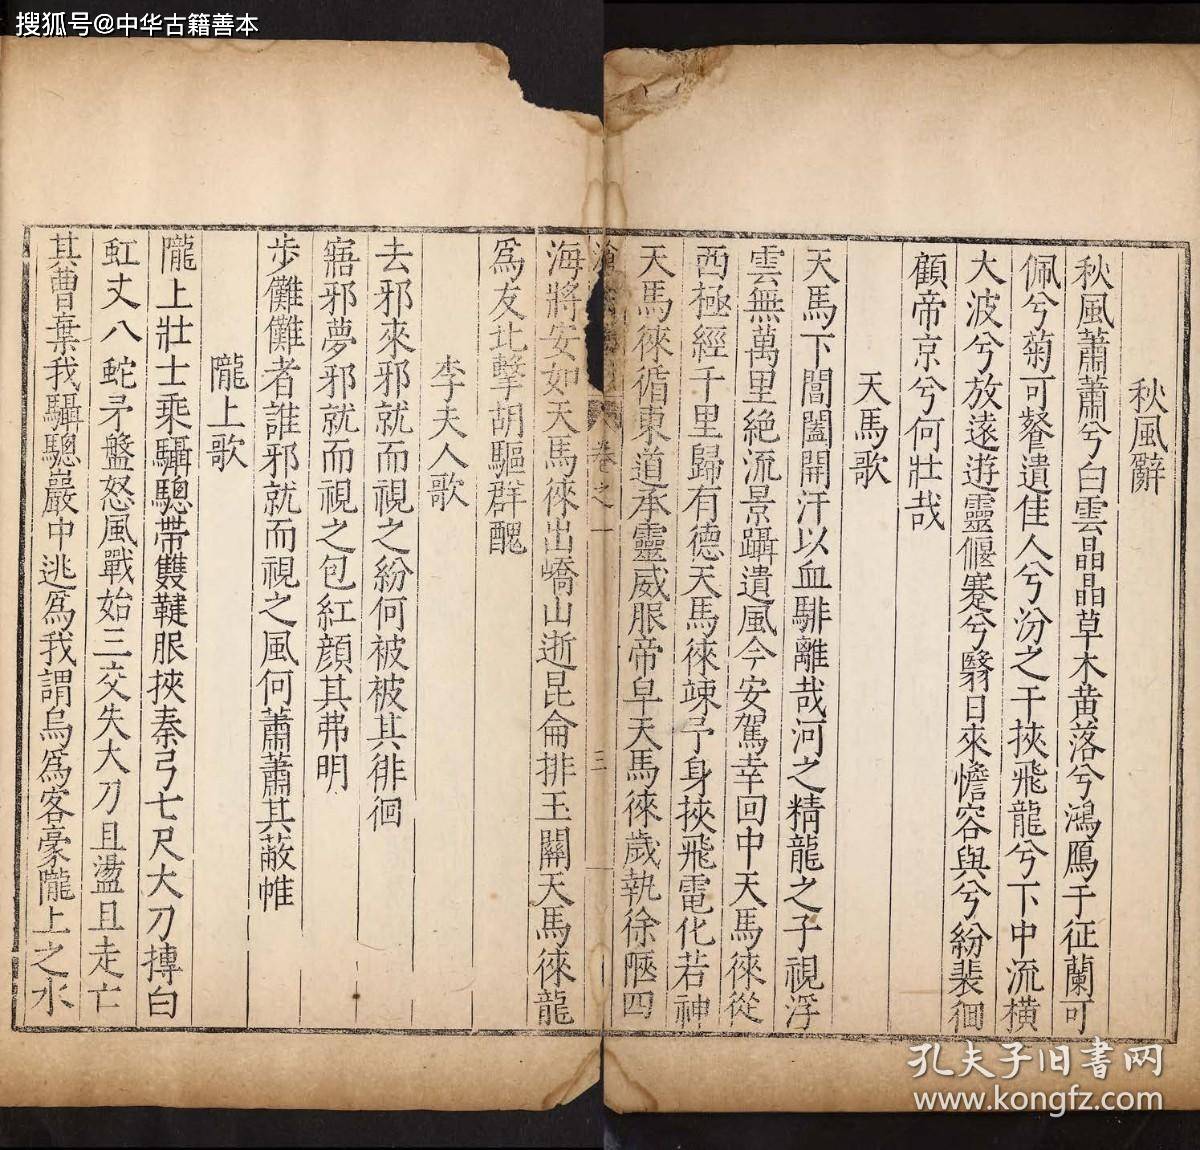 搜狐号@中华古籍善本
秋風辭
秋風蕭蕭兮白雲晶晶草木黄落兮鴻鴈于征蘭可
佩兮菊可餐遺佳人兮汾之干挾飛龍兮下中流横
大波兮放遠遊靈偃蹇兮翳日來憺容與兮紛裴徊
顧帝京兮何壯哉
天馬歌
天馬下閶闔開汗以血騑離哉河之精龍之子視浮
雲無萬里絶流景躡遺風今安駕幸回中天馬徠從
西極經千里歸有德天馬徠竦予身挾飛電化若神
天馬徠循東道承靈威服帝皁天馬徠歲執徐陋四
滄
卷之一
三
海將安如天馬徠出嶠山逝昆侖排玉關天馬徠龍
爲友北擊胡驅群醜
李夫人歌
去邪來邪就而視之紛何被被其徘徊
寤邪夢邪就而視之包紅顔其弗明
步儺儺者誰邪就而視之風何蕭蕭其蔽帷
隴上歌
隴上壯士乘驌驄帶雙鞬服挾秦弓七尺大刀摶白
虹丈八蛇矛盤怒風戰始三交失大刀且盪且走亡
其曹棄我驌驄巖中逃爲我謂烏爲客豪隴上之水
孔夫子旧书网
www.kongfz.com